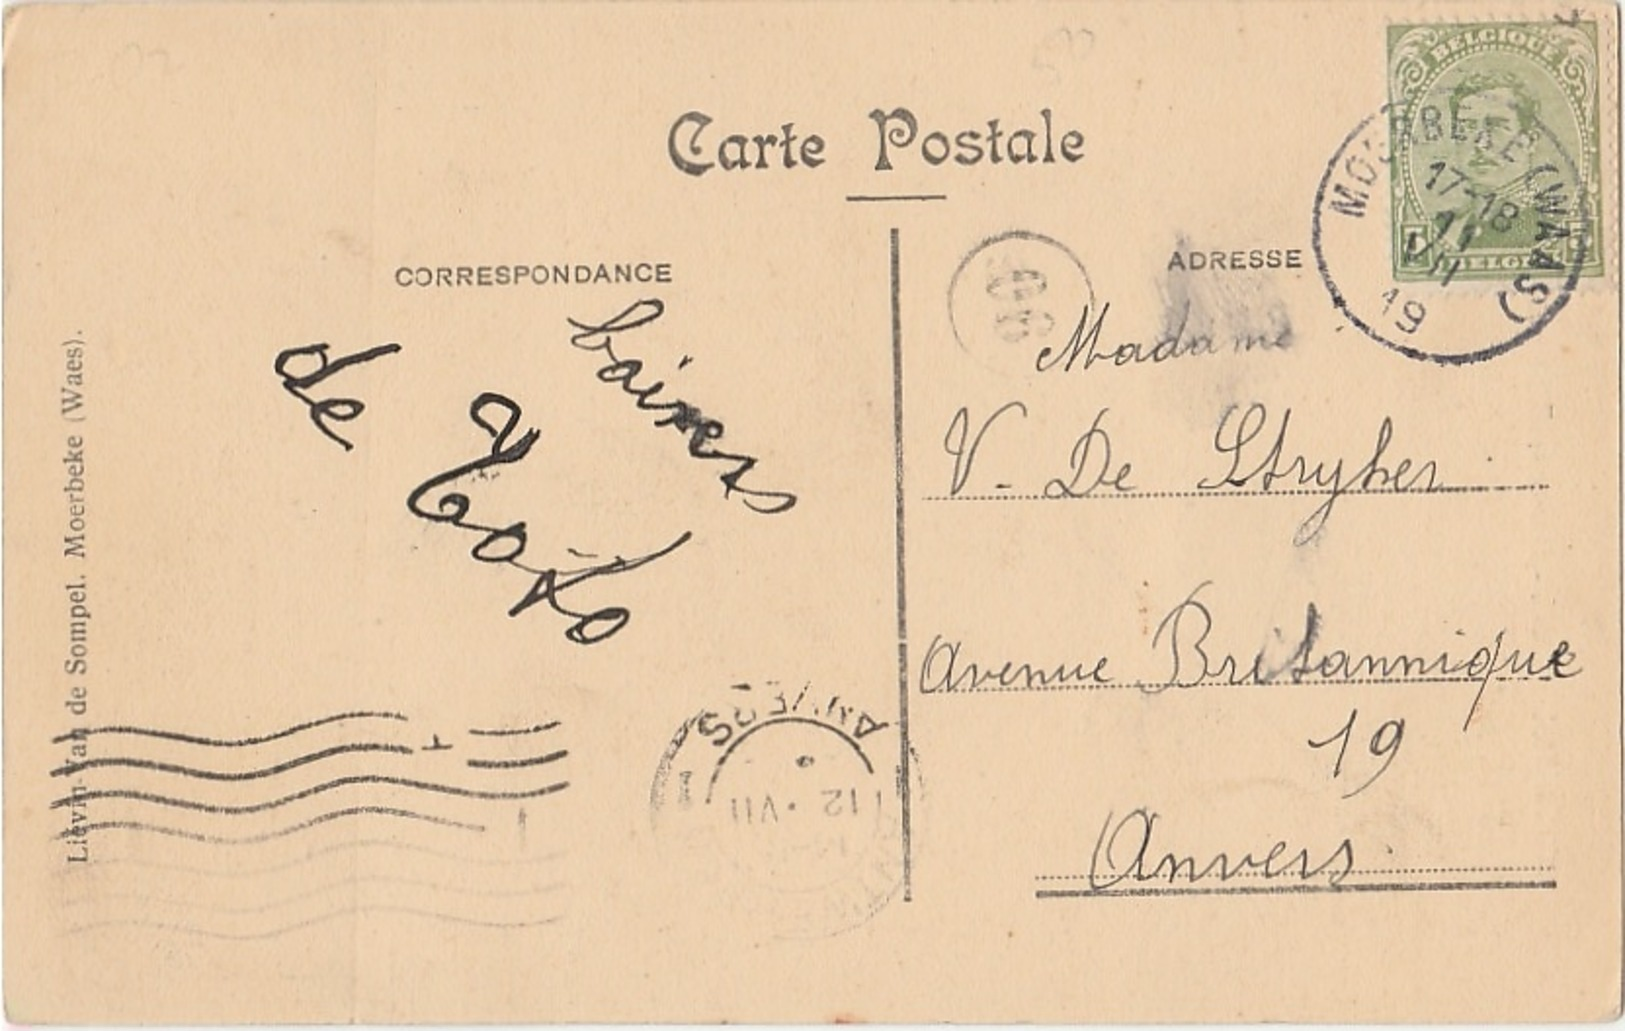 Carte Postale
CORRESPONDANCE
ADRESSE
BELGIQUE
5
5
BELGIË
MOERBEKE (WAAS)
17-18
11
VII
19
de
Madame
V. De Stryker
Avenue Britannique
19
Anvers
ANVERS
1
12 · VII
Liévin Van de Sompel. Moerbeke (Waes).